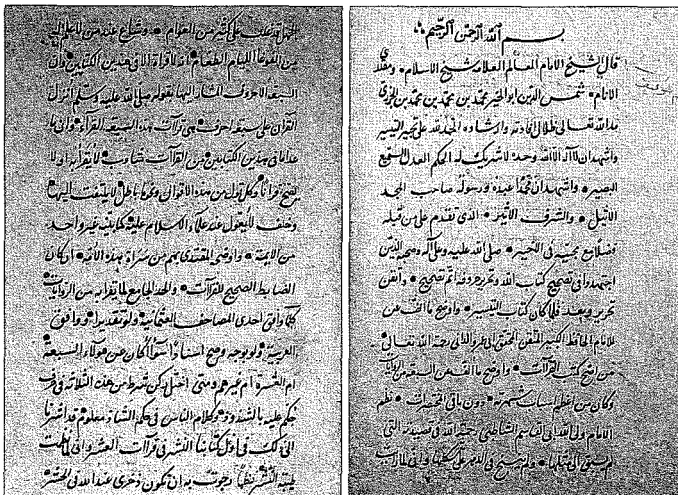 بسم الله الرحمن الرحيم
قال الشيخ الامام العالم العلامة شيخ الاسلام ومقتدى
الانام شمس الدين ابو الخير محمد بن محمد بن محمد بن الجزري
مد الله تعالى ظلال افادته وارشاده الحمد لله على تحبير التيسير
واشهد ان لا اله الا الله وحده لا شريك له الحكم العدل السميع
البصير واشهد ان محمدا عبده ورسوله صاحب المجد
الاثيل والشرف الاثير الذى تقدم على من قبله
فضلا مع مجيئه فى التاخير صلى الله عليه وعلى آله وصحبه الذين
اجتهدوا فى تصحيح كتاب الله وتحرير حروفه اتم تصحيح واتقن
تحرير وبعد فلما كان كتاب التيسير
للامام الحافظ الكبير المتقن المحقق ابى عمرو الدانى رحمة الله تعالى
من اصح كتب القرآات واوضح ما الف عن السبعة من الروايات
وكان من اعظم اسباب شهرته دون باقى المختصرات نظم
الامام ولى الله ابى القاسم الشاطبى رحمه الله فى قصيدته التى
لم يسبق الى مثالها ولم ينسج فى الدهر على منوالها
الجهل قد غلب على كثير من العوام وشاع عند من لا علم له
السبعة الاحرف المشار اليها بقوله صلى الله عليه وسلم انزل
القرآن على سبعة احرف هى قرآات هذه السبعة القراء وان ما
عدا ما فى هذين الكتابين من القرآات
يصح قرآنا وكل قول من هذه الاقوال ونحوها باطل لا يلتفت اليها
من الائمة واوضح المقتدى بهم من سراة هذه الامة اذ كان
الضابط الصحيح للقرآات والحد الجامع لما يقرا به من الروايات
كلما وافق احدى المصاحف العثمانية ولو تقديرا ووافق
العربية ولو بوجه وصح اسنادا سواء كان عن هؤلاء السبعة
ام العشرة ام غيرهم ومتى اختل ركن شرط من هذه الثلاثة فى حرف
يحكم عليه بالشذوذ وكلام الناس فى حكم الشاذ معلوم قد اشرنا
الى ذلك فى اول كتابنا النشر فى قرآات العشر وانى لما نظمت
طيبة النشر نظما رجوت به ان تكون ذخرى عند الله فى الحشر